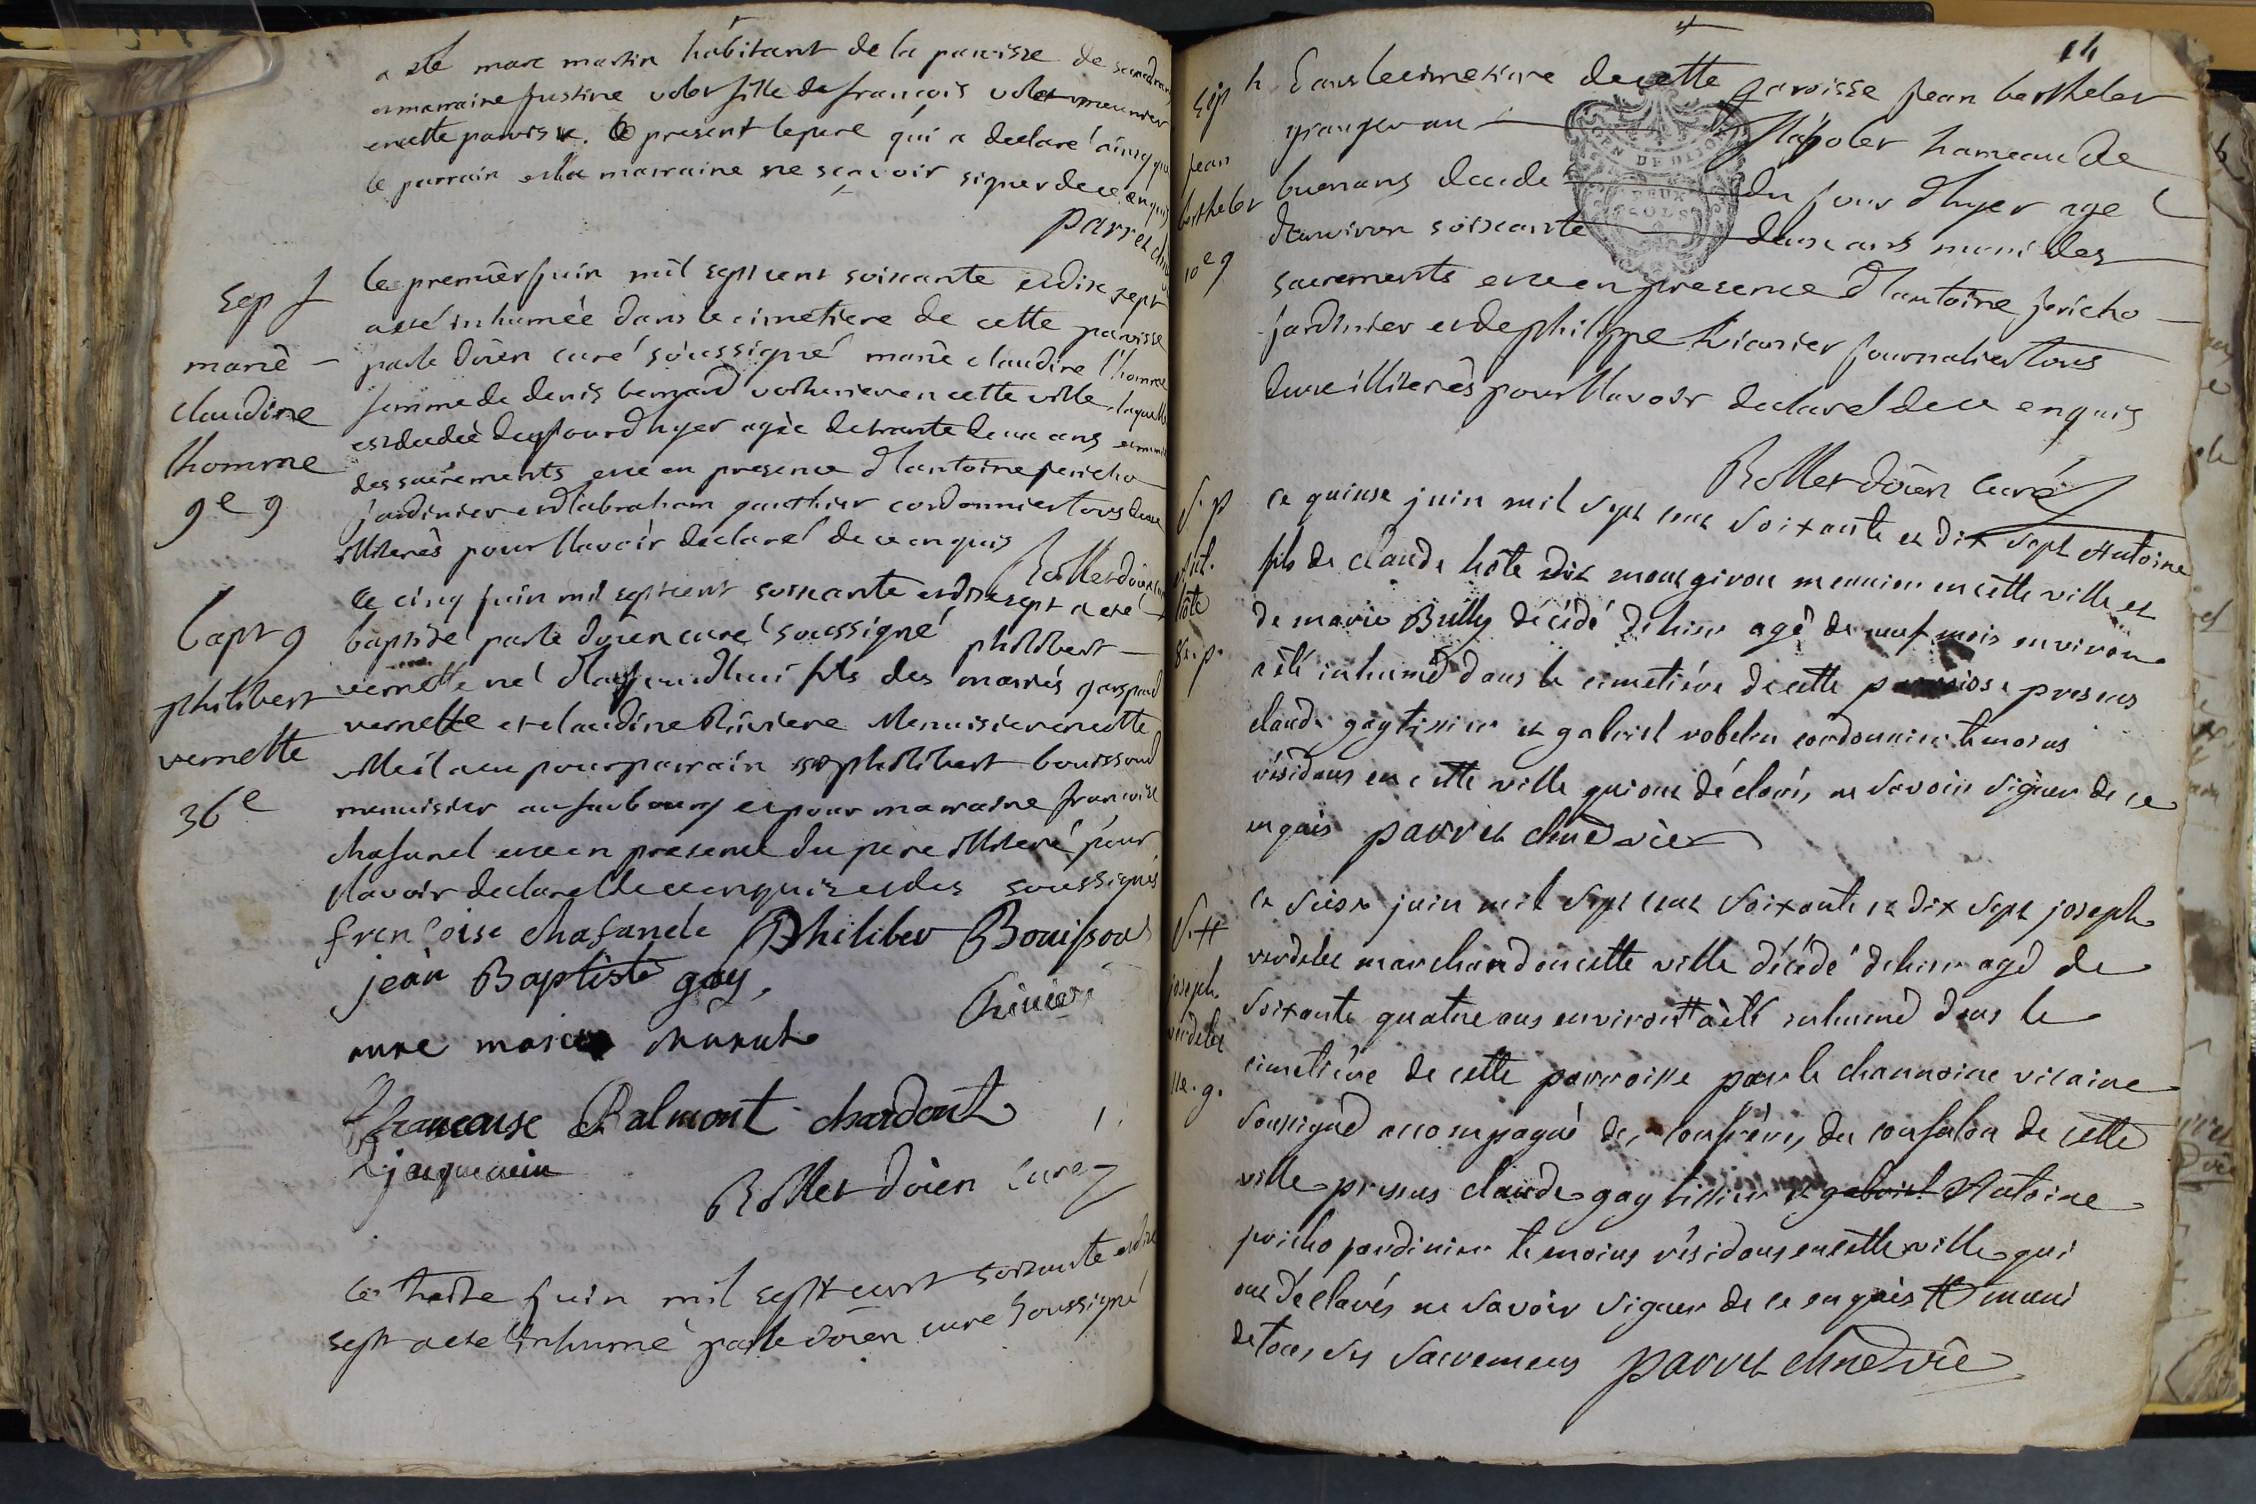 a ete marc martin habitant de la paroisse de
et marraine justine volet fille de francois volet meunier
en cette paroisse. le present le pere qui a declaré ainsy que
le parrain et la marraine ne sçavoir signer de ce enquis
parret
Sep f
marie
claudine
lhomme
9e g
le premier juin mil sept cent soixante et dix sept
a eté inhumée dans le cimetiere de cette paroisse
par le doien curé soussigné marie claudine l'homme
femme de denis bernard voiturier en cette ville laquelle
est decedée du jour d'hyer agée de trante deux ans et munie
des sacrements et ce en presence d'antoine jericho
jardinier et d'abraham gauthier cordonnier tous deux
illiterés pour l'avoir declaré de ce enquis
Rollet doien curé
bapt g
philibert
vernette
36e
le cinq juin mil sept cent soixante et dix sept a eté
baptisé par le doien curé soussigné philibert
vernette né d'aujourd'hui fils des mariés gaspard
vernette et claudine Riviere Menuisier en cette
ville il a eu pour parrain philibert bouissoud
menuisier au faubourg et pour marraine francoise
chasanel et ce en presence du pere illiteré pour
l'avoir declaré de ce enquis et des soussignés
françoise chasanele Philiber Bouissoud
jean Baptiste gay,
anne marie
francoise Balmont chardont
jaquemin
Rollet doien curé
le treize juin mil sept cent soixante et dix
sept a eté inhumé par le doien curé soussigné
14
Sep h
jean
berthelet
10e g
dans le cimetiere de cette paroisse jean berthelet
granger au hameau de
buenans decedé du jour d'hyer agé
d'environ soixante deux ans muni des
sacrements et ce en presence d'antoine jericho
jardinier et de philippe journalier tous
deux illiterés pour l'avoir declaré de ce enquis
Rollet doien curé
S. p
Ant.
hôte
8e. p.
ce quinse juin mil sept cent soixante et dix sept Antoine
fils de claude hôte dit mongivon meunier en cette ville et
de marie Bully décédé d'hier agé de neuf mois environ
a été inhumé dans le cimetiére de cette paroisse presens
claude gay tissier et gabriel robelin cordonnier temoins
résidens en cette ville qui ont déclarés ne savoir signer de ce
enquis parret ch<sup></sup> vic
S. H
joseph
verdelet
11e. g.
ce seise juin mil sept cent soixante et dix sept joseph
verdelet marchand en cette ville décédé d'hier agé de
soixante quatre ans environ # a été inhumé dans le
cimetiére de cette parroisse par le channoine vicaire
soussigné accompagné des confréres du confalon de cette
ville presens claude gay tissier et gabriel Antoine
jericho jardinier temoins résidens en cette ville qui
ont déclarés ne savoir signer de ce enquis # muni
de tous ses sacremens parret vic